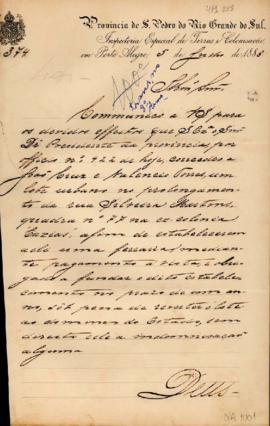 Provincia de S. Pedro do Rio Grande do Sul.
Inspectoria Especial de Terras e Colonisação
em Porto Alegre, 5 de de 188
374
Illmo Snr.
Communico a VS para
os devidos effeitos que S Exª o Snr
Dr Presidente da provincia, por
officio nº de hoje, concedeo a
João Cruz e Valencio Torres, um
lote urbano no prolongamento
da rua Silveira Martins,
quadra nº 77 na ex colonia
Caxias, afim de estabelecerem
nelle uma ferraria, mediante
pagamento á vista, e obri-
gado a fundar o dito estabele-
cimento no prazo de um an-
no, sob pena de reverter o lote
ao dominio do Estado, sem
direito elle a indemnisação
alguma
Deus